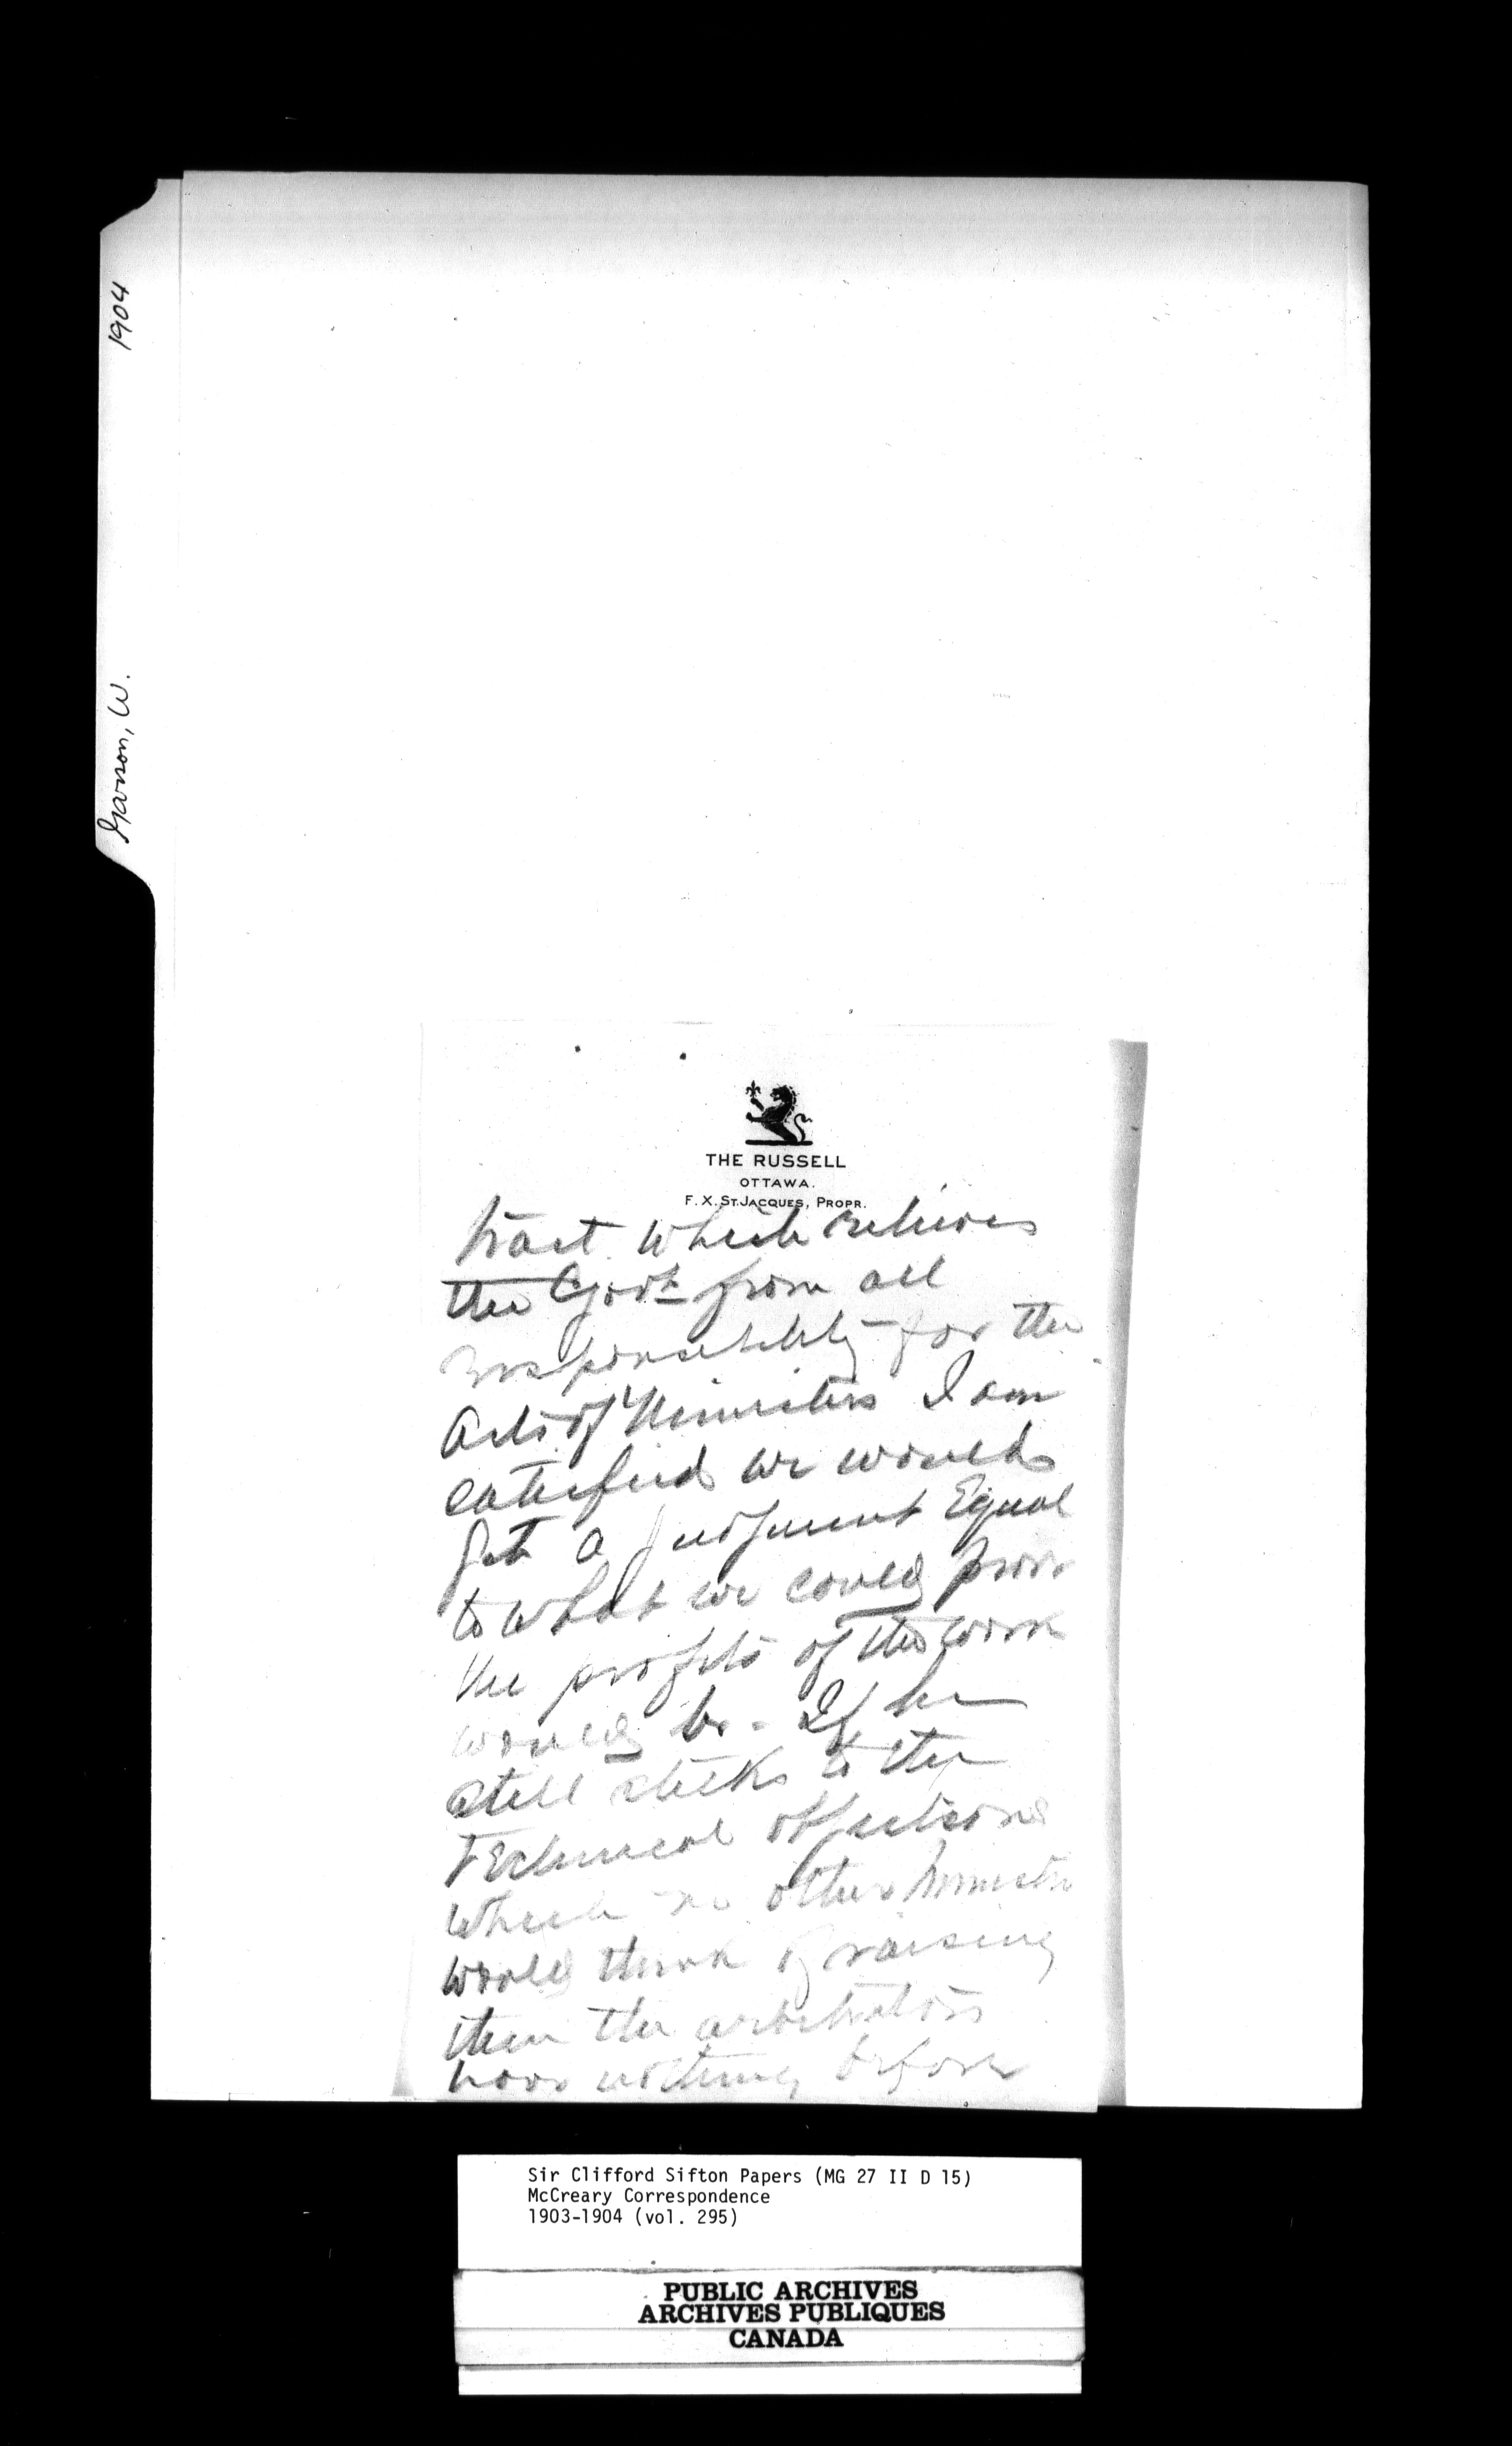 1904
Garson, W.
THE RUSSELL
OTTAWA.
F. X. ST. JACQUES, PROPR.
tract which relieves
the Govt from all
responsibility for the
acts of Ministers I am
satisfied we would
get a judgment Equal
to what we could prove
the profits of the work
would be - If he
still sticks to the
Technical objections
which no other minister
would think of raising
then the arbitrators
have nothing before
Sir Clifford Sifton Papers (MG 27 II D 15)
McCreary Correspondence
1903-1904 (vol. 295)
PUBLIC ARCHIVES
ARCHIVES PUBLIQUES
CANADA